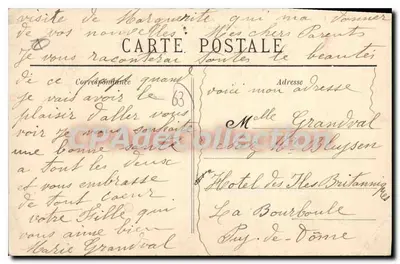 visite de Marguerite qui ma donner
de vos nouvelles. Mes chers Parents
CARTE POSTALE
Je vous raconterai toutes le beautés
Correspondance
de ce quand
je vais avoir le
plaisir d'aller vous
voir je vous souhaite
une bonne santé
a tout les deux
et vous embrasse
de tout cœur
votre fille qui
vous aime bien
Marie Grandval
63
Adresse
voici mon adresse
Melle Grandval
Hotel des Iles Britanniques
La Bourboule
Puy-de-Dôme
CPAdeCollection